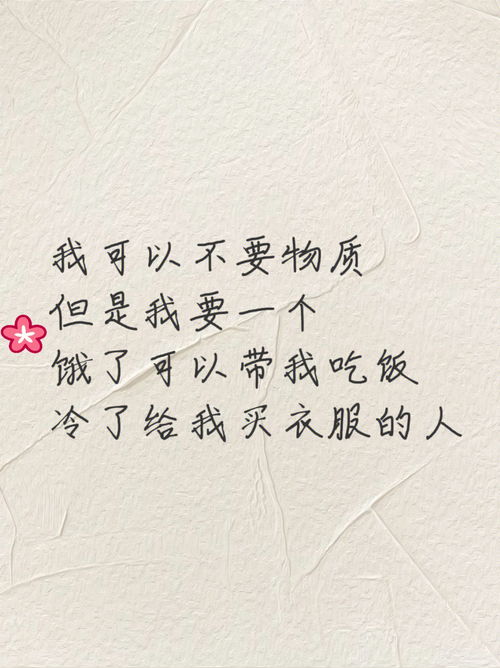 我可以不要物质
但是我要一个
饿了可以带我吃饭
冷了给我买衣服的人